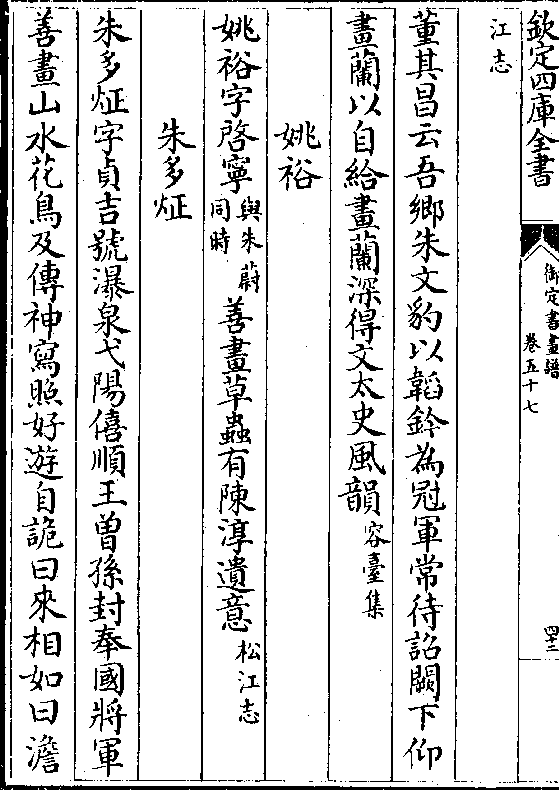 欽定四庫全書
御定書畫譜
卷五十七
四十三
江志
董其昌云吾鄉朱文豹以韜鈐為冠軍常待詔闕下仰
畫蘭以自給畫蘭深得文太史風韻容臺集
姚裕
姚裕字啓寧與朱蔚同時善畫草蟲有陳淳遺意松江志
朱多炡
朱多炡字貞吉號瀑泉弋陽僖順王曾孫封奉國將軍
善畫山水花鳥及傳神寫照好遊自詭曰來相如曰澹